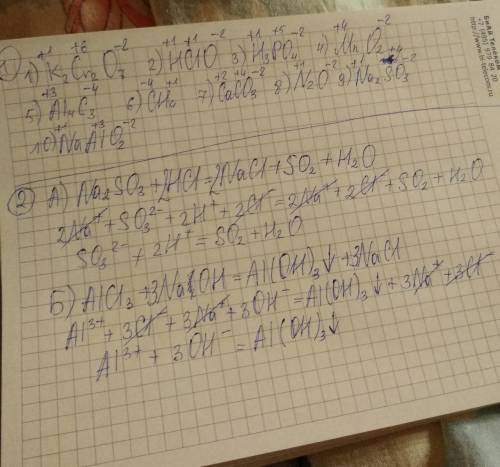 ① 1) K₂⁺¹Cr₂⁺⁶O₇⁻² 2) H⁺¹Cl⁺¹O⁻² 3) H₃⁺¹P⁺⁵O₄⁻² 4) Mn⁺⁴O₂⁻²
5) Al₄⁺³C₃⁻⁴ 6) C⁻⁴H₄⁺¹ 7) Ca⁺²C⁺⁴O₃⁻² 8) N₂⁺¹O⁻² 9) Na₂⁺¹S⁺⁴O₃⁻²
10) Na⁺¹Al⁺³O₂⁻²
② А) Na₂SO₃ + 2HCl = 2NaCl + SO₂ + H₂O
2Na⁺ + SO₃²⁻ + 2H⁺ + 2Cl⁻ = 2Na⁺ + 2Cl⁻ + SO₂ + H₂O
SO₃²⁻ + 2H⁺ = SO₂ + H₂O
Б) AlCl₃ + 3NaOH = Al(OH)₃↓ + 3NaCl
Al³⁺ + 3Cl⁻ + 3Na⁺ + 3OH⁻ = Al(OH)₃↓ + 3Na⁺ + 3Cl⁻
Al³⁺ + 3OH⁻ = Al(OH)₃↓